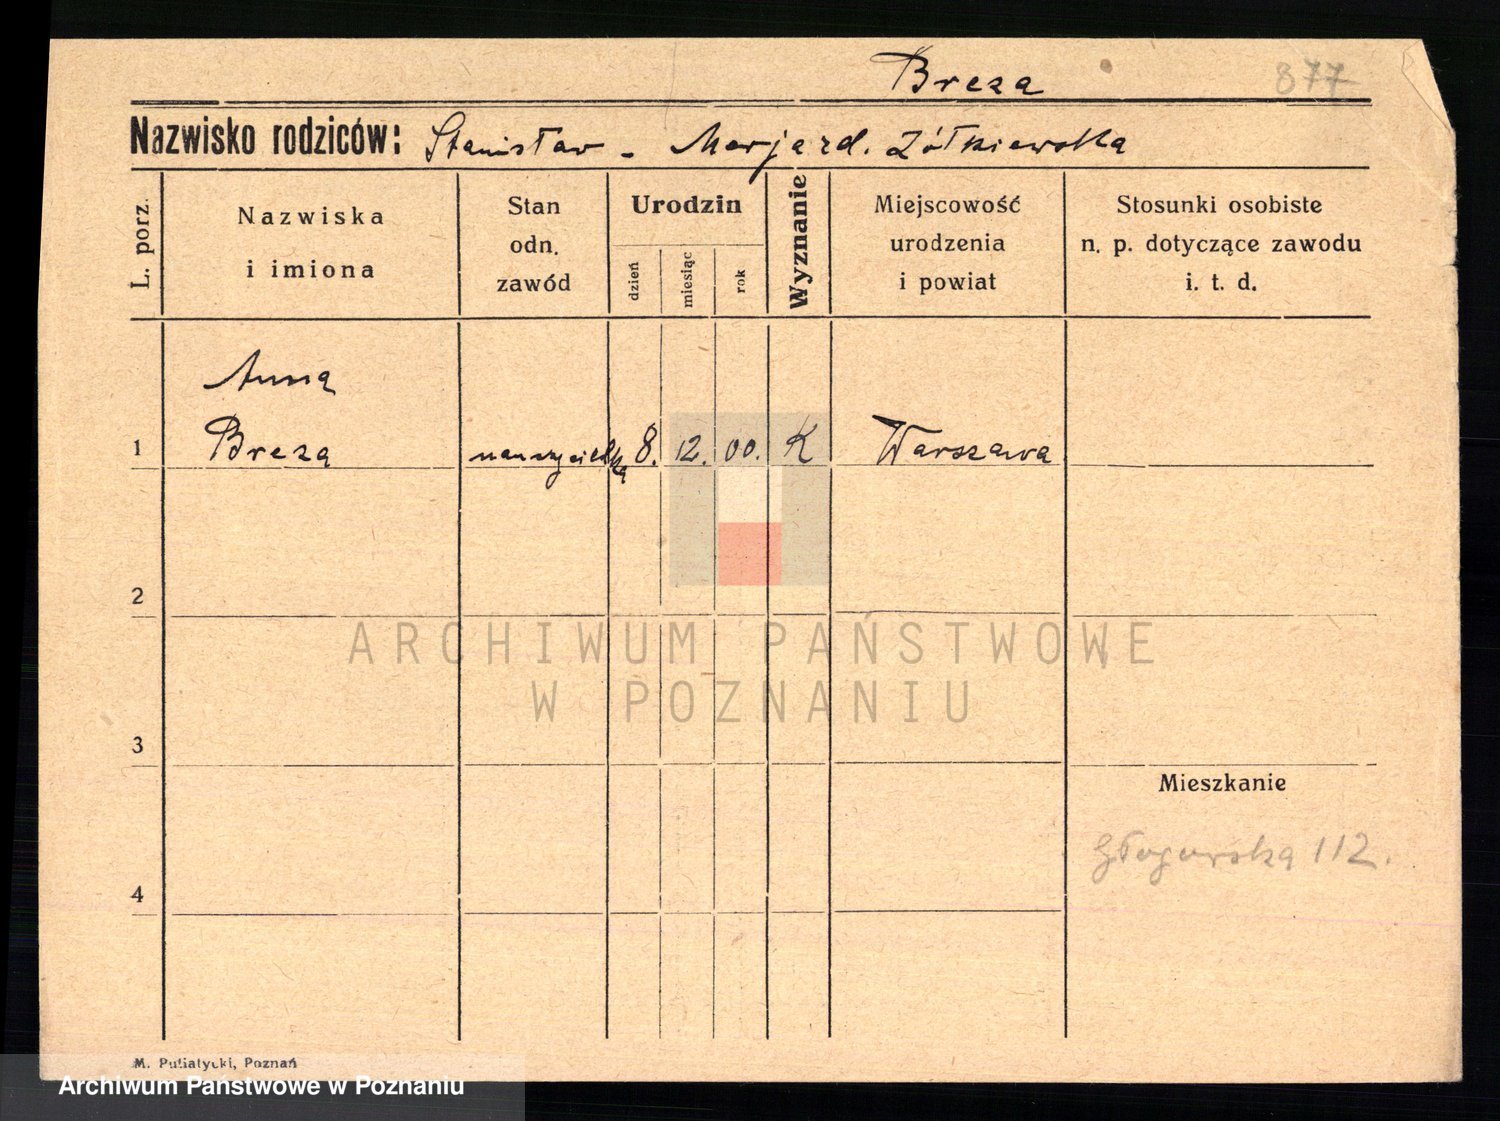 Breza 877
Nazwisko rodziców: Stanisław - Marja zd. Żółkiewska
L. porz.
Nazwiska
i imiona
Stan
odn.
zawód
Urodzin
dzień
miesiąc
rok
Wyznanie
Miejscowość
urodzenia
i powiat
Stosunki osobiste
n. p. dotyczące zawodu
i. t. d.
Anna
1 Breza nauczycielka 8. 12. 00. K Warszawa
2
ARCHIWUM PAŃSTWOWE
W POZNANIU
3
Mieszkanie
Głogowska 112.
4
M. Putiatycki, Poznań
Archiwum Państwowe w Poznaniu